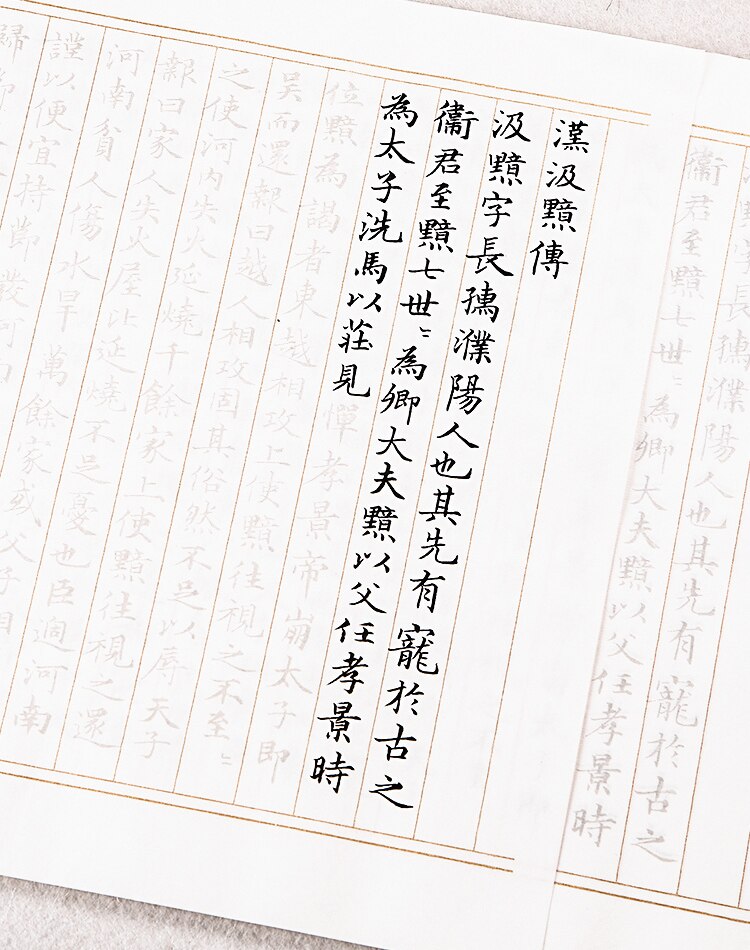 字長孺濮陽人也其先有寵於古之
衛君至黯七世〻為卿大夫黯以父任孝景時
漢汲黯傳
汲黯字長孺濮陽人也其先有寵於古之
衛君至黯七世〻為卿大夫黯以父任孝景時
為太子洗馬以莊見憚孝景帝崩太子即
位黯為謁者東越相攻上使黯往視之不至〻
吳而還報曰越人相攻固其俗然不足以辱天子
之使河內失火延燒千餘家上使黯往視之還
報曰家人失火屋比延燒不足憂也臣過河南
河南貧人傷水旱萬餘家或父子相
謹以便宜持節發河南
歸節